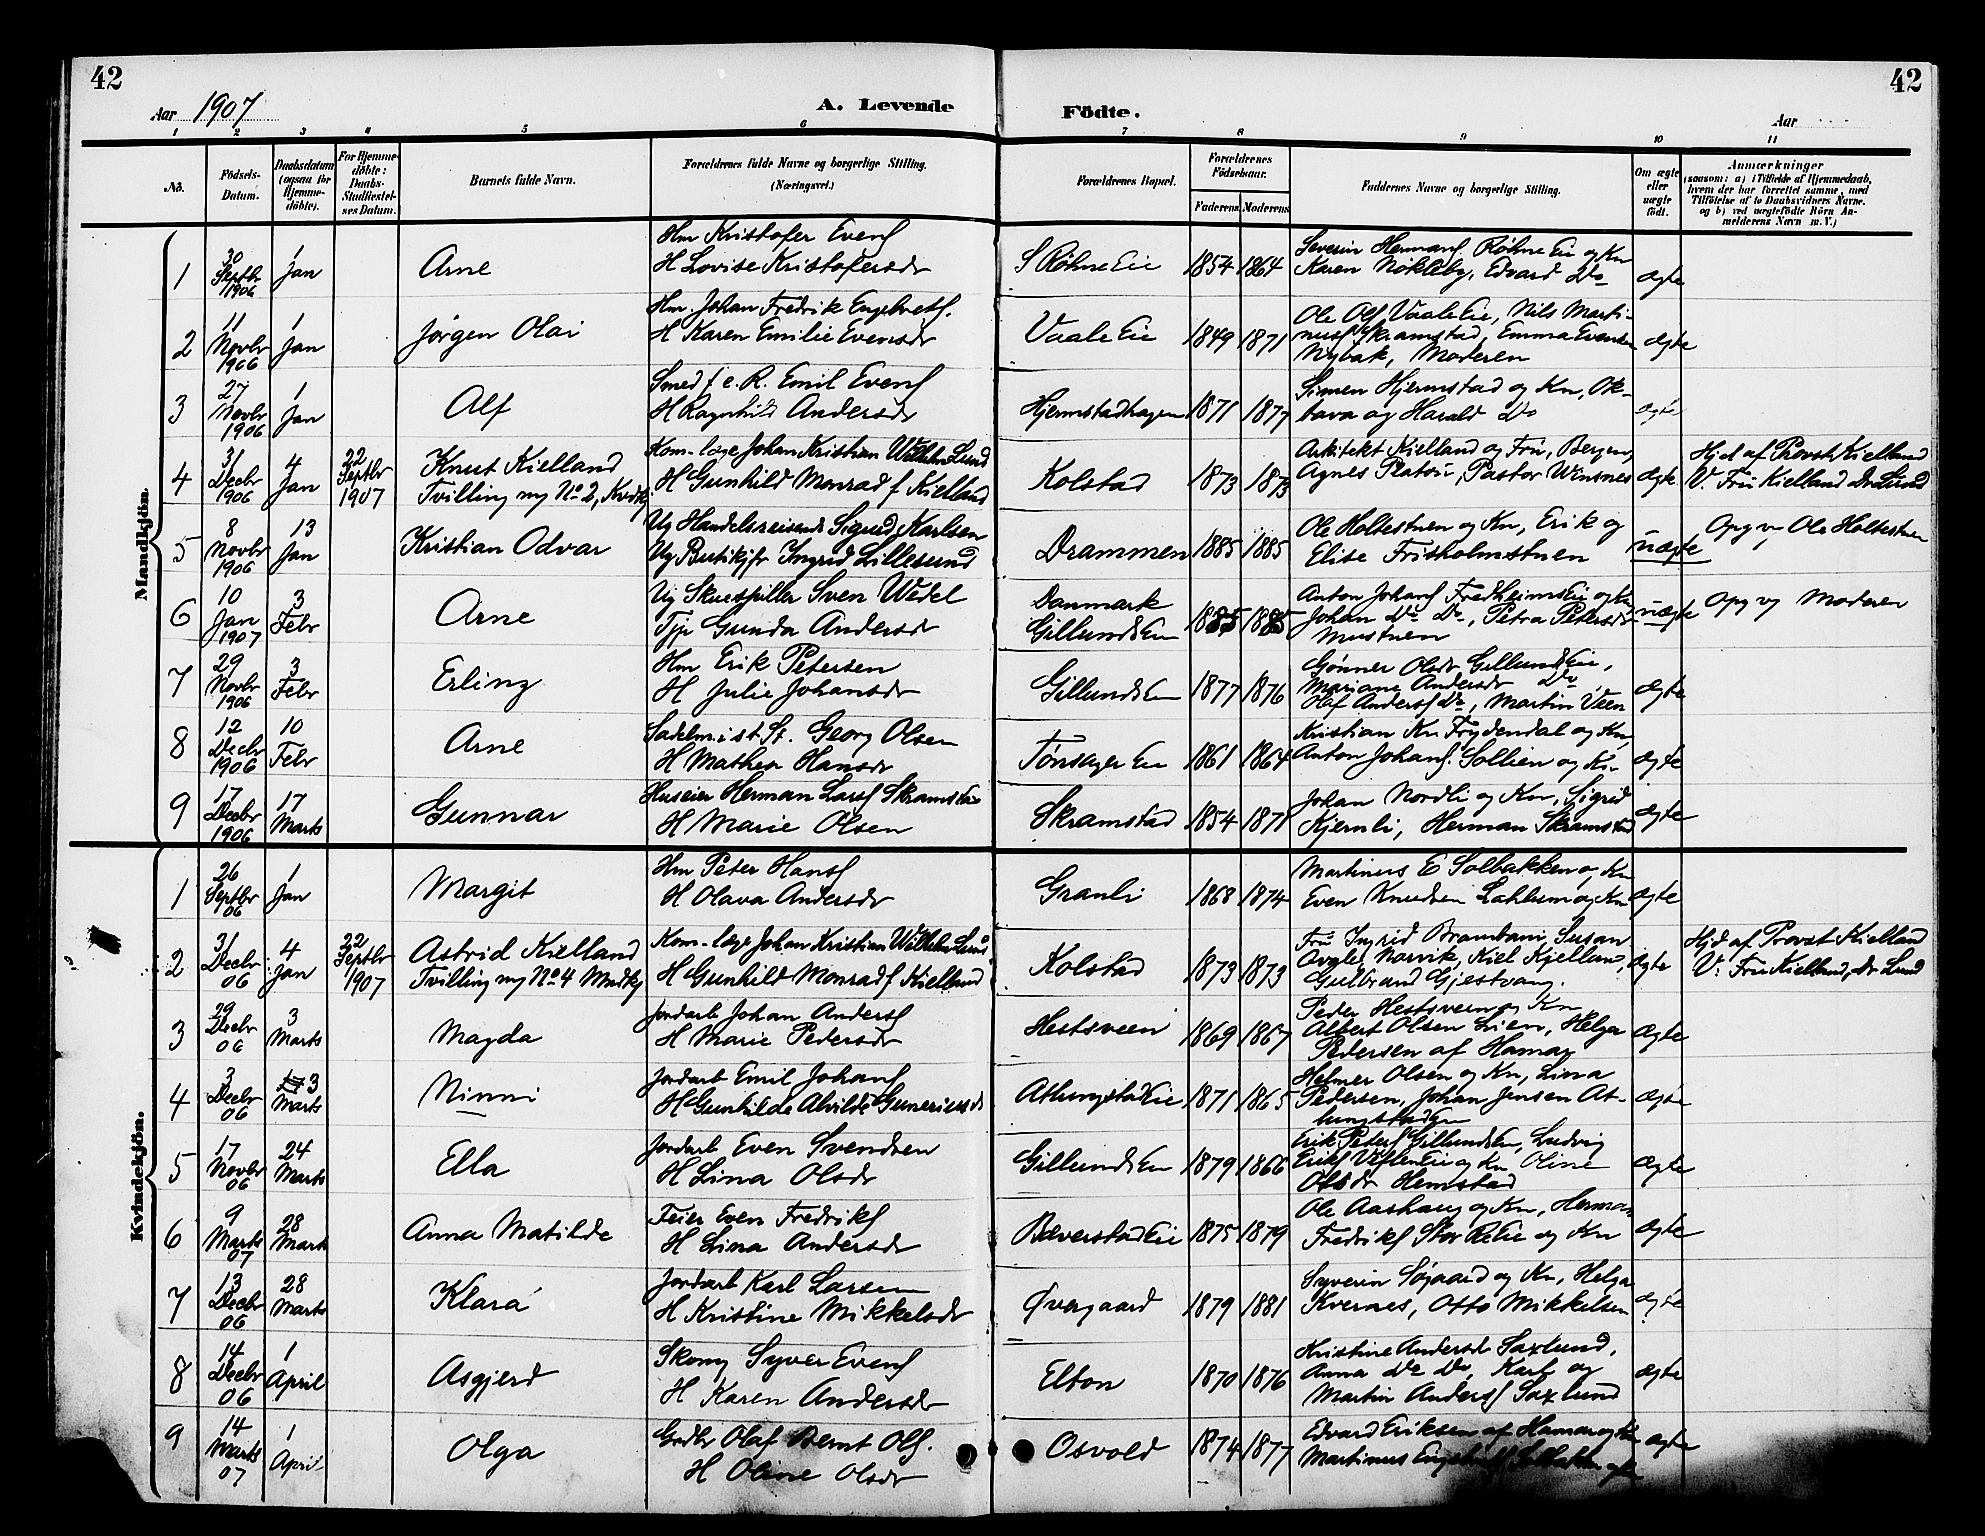 42
42
Aar 1907
A. Levende
Födte.
Aar
1 2 3 4 5 6 7 8 9 10 11
No.
Födsels-Datum.
Daabsdatum (ogsaa for Hjemmedöbte).
For Hjemmedöbte: Daabs-Stadfæstelses Datum.
Barnets fulde Navn.
Forældrenes fulde Navne og borgerlige Stilling. (Næringsvei.)
Forældrenes Bopæl.
Forældrenes Födselsaar.
Faderens. Moderens.
Faddernes Navne og borgerlige Stilling.
Om ægte eller uægte födt.
Anmærkninger
(saasom: a) i Tilfælde af Hjemmedaab,
hvem der har forrettet samme, med
Tilföielse af to Daabsvidners Navne.
og b) ved uægtefödte Börn Anmelderens Navn m. V.)
Mandkjön.
1 30 Septbr 1906 1 Jan Arne Hm Kristofer Evens
H Lovise Kristofersdr S Røhne Eie 1854 1864 Severin Hermans Røhne Eie og Kn
Karen Nökleby, Edvard Do ægte
2 11 Novbr 1906 1 Jan Jørgen Olai Hm Johan Fredrik Engebrets.
H Karen Emilie Evensdr Vaale Eie 1849 1871 Ole Ols Vaale Eie, Nils Marti-
nus Skramstad, Emma Evensen
Nybak, Moderen ægte
3 27 Novbr 1906 1 Jan Alf Smed f e. R. Emil Evens
H Ragnhild Andersdr Hjermstadhagen 1871 1877 Simen Hjermstad og Kn, Ok-
tava og Harald Do ægte
4 31 Decbr 1906 4 Jan 22 Septbr 1907 Knut Kielland
Tvilling m No 2, Kvdkj. Kom-læge Johan Kristian Wilhelm Lund
H Gunhild Monrad f Kielland Kolstad 1873 1873 Arkitekt Kielland og Fru, Bergen,
Agnes Platou, Pastor Winsnes ægte Hjd af Provst Kielland
V. Fru Kielland Dr Lund
5 8 Novbr 1906 13 Jan Kristian Odvar Ug Handelsreisende Sigurd Karlsen
Ug Butikjfr Ingrid Lillesund Drammen 1885 1885 Ole Holtestuen og Kn, Erik og
Elise Frisholmstuen uægte Opg v Ole Holtestuen
6 10 Jan 1907 3 Febr Arne Ug Skuespiller Sven Wedel
Tje Gunda Andersdr Danmark
Gillunds Eie 1885 1885 Anton Johans Fredheims Eie og Kn
Johan Do Do, Petra Petersdr
Mustuen uægte Opg v Moderen
7 29 Novbr 1906 3 Febr Erling Hm Erik Petersen
H Julie Johansdr Gillunds Eie 1877 1876 Gønner Olsdr Gillunds Eie,
Mariane Andersdr Do
Olaf Anders Do, Martin Veen ægte
8 12 Decbr 1906 10 Febr Arne Sadelm i st St. Georg Olsen
H Mathea Hansdr Tønsager Eie 1861 1864 Kristian Kr. Frydendal og Kn,
Anton Johans. Sollien og Kn ægte
9 17 Decbr 1906 17 Marts Gunnar Huseier Herman Lars Skramstad
H Marie Olsen Skramstad 1854 1871 Johan Nordli og Kn, Sigrid
Kjernli, Herman Skramstad ægte
Kvindekjön.
1 26 Septbr 06 1 Jan Margit Hm Peter Hans
H Olava Andersdr Granli 1868 1874 Martinus E Solbakken og Kn
Even Knudsen Lahlum og Kn ægte
2 31 Decbr 06 4 Jan 22 Septbr 1907 Astrid Kielland
Tvilling m No 4 Mndkj Kom-læge Johan Kristian Wilhelm Lund
H Gunhild Monrad f Kielland Kolstad 1873 1873 Fru Ingrid Brambani, Susan
Narvik, Kiel Kjelland,
Gulbrand Gjestvang. ægte Hjd af Provst Kielland
V: Fru Kielland, Dr Lund
3 29 Decbr 06 3 Marts Magda Jordarb Johan Anders
H Marie Pedersdr Hestsveen 1869 1867 Peder Hestsveen og Kn
Albert Olsen Lien, Helga
Pedersen af Hamar ægte
4 3 Decbr 06 3 Marts Ninni Jordarb Emil Johans
H Gunhilde Alvilde Guneriusdr Atlungstad Eie 1871 1865 Helmer Olsen og Kn, Lina
Pedersen, Johan Jensen At-
lungstad Eie ægte
5 17 Novbr 06 24 Marts Ella Jordarb Even Svendsen
H Lina Olsdr Gillunds Eie 1879 1866 Erik Peters Gillunds Eie, Ludvig
Eriks Viflen Eie og Kn Oline
Olsdr Hemstad ægte
6 9 Marts 07 28 Marts Anna Matilde Feier Even Fredriks
H Lina Andersdr Bæverstad Eie 1875 1879 Ole Aashaug og Kn, Herman
Fredriks Stor Re Eie og Kn ægte
7 13 Decbr 06 28 Marts Klara Jordarb Karl Larsen
H Kristine Mikkelsdr Øvergaard 1879 1881 Syverin Søgaard og Kn, Helga
Kvernes, Otto Mikkelsen ægte
8 14 Decbr 06 1 April Asgjerd Skomg Syver Evens
H Karen Andersdr Elton 1870 1876 Kristine Andersdr Saxlund,
Anna Do Do, Karl og
Martin Anders Saxlund ægte
9 14 Marts 07 1 April Olga Grdbr Olaf Bernt Ols.
H Oline Olsdr Osvold 1874 1877 Edvard Eriksen af Hamar og Kn
Martinus ægte